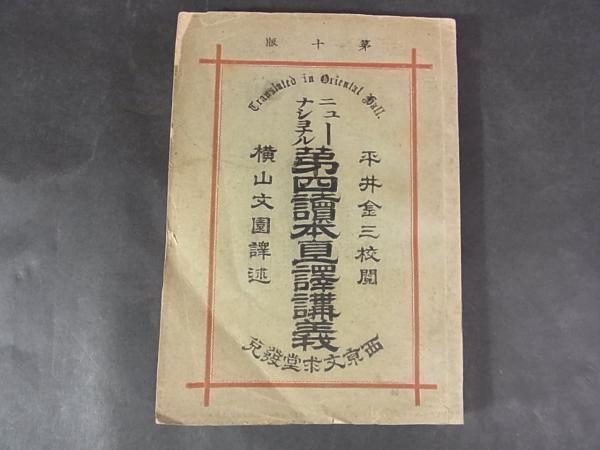 第十版
Translated in Oriental Hall.
平井金三校閲
ニューナショナル
第四讀本直譯講義
横山文園譯述
西京文求堂發兌